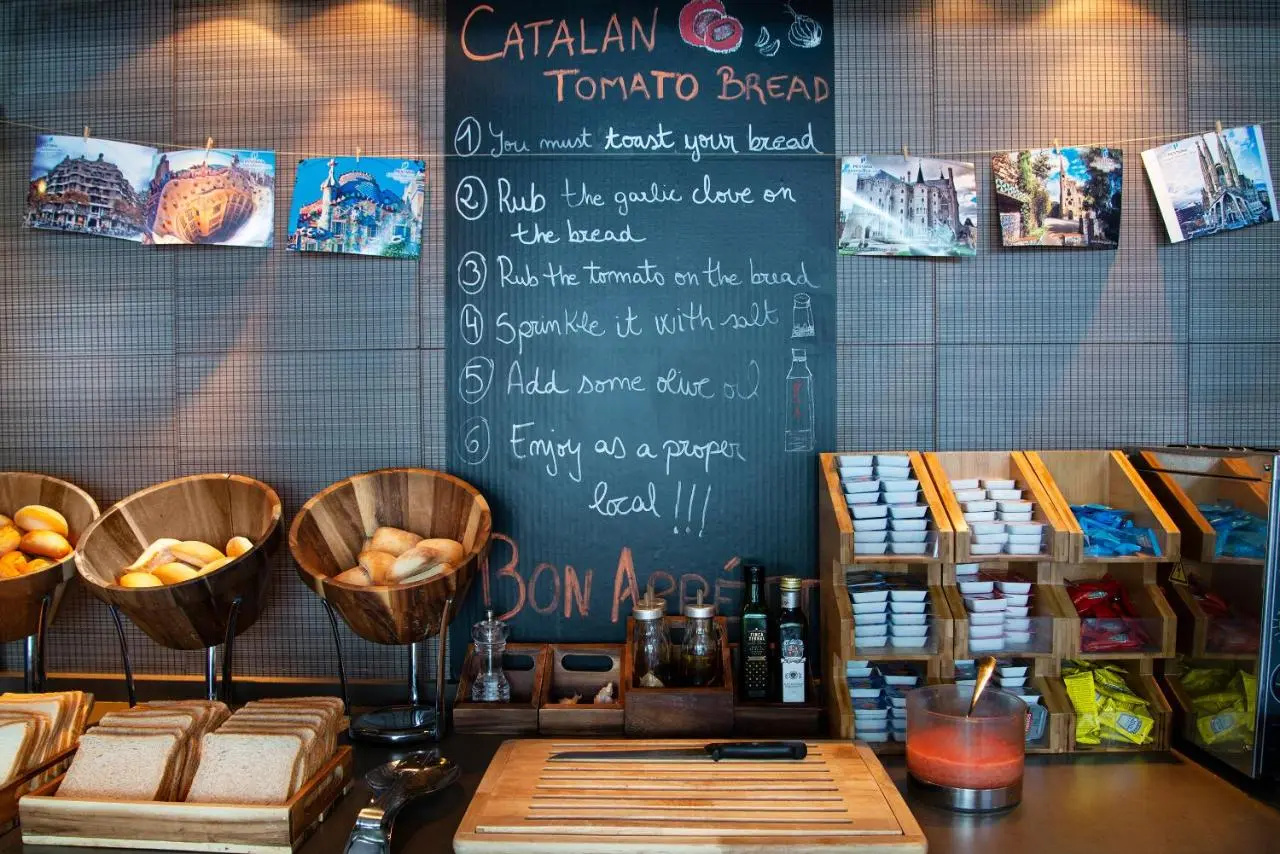 CATALAN
TOMATO BREAD
① You must toast your bread
② Rub the garlic clove on
the bread
③ Rub the tomato on the bread
④ Sprinkle it with salt
⑤ Add some olive oil
⑥ Enjoy as a proper
local !!!
BON APPÉT